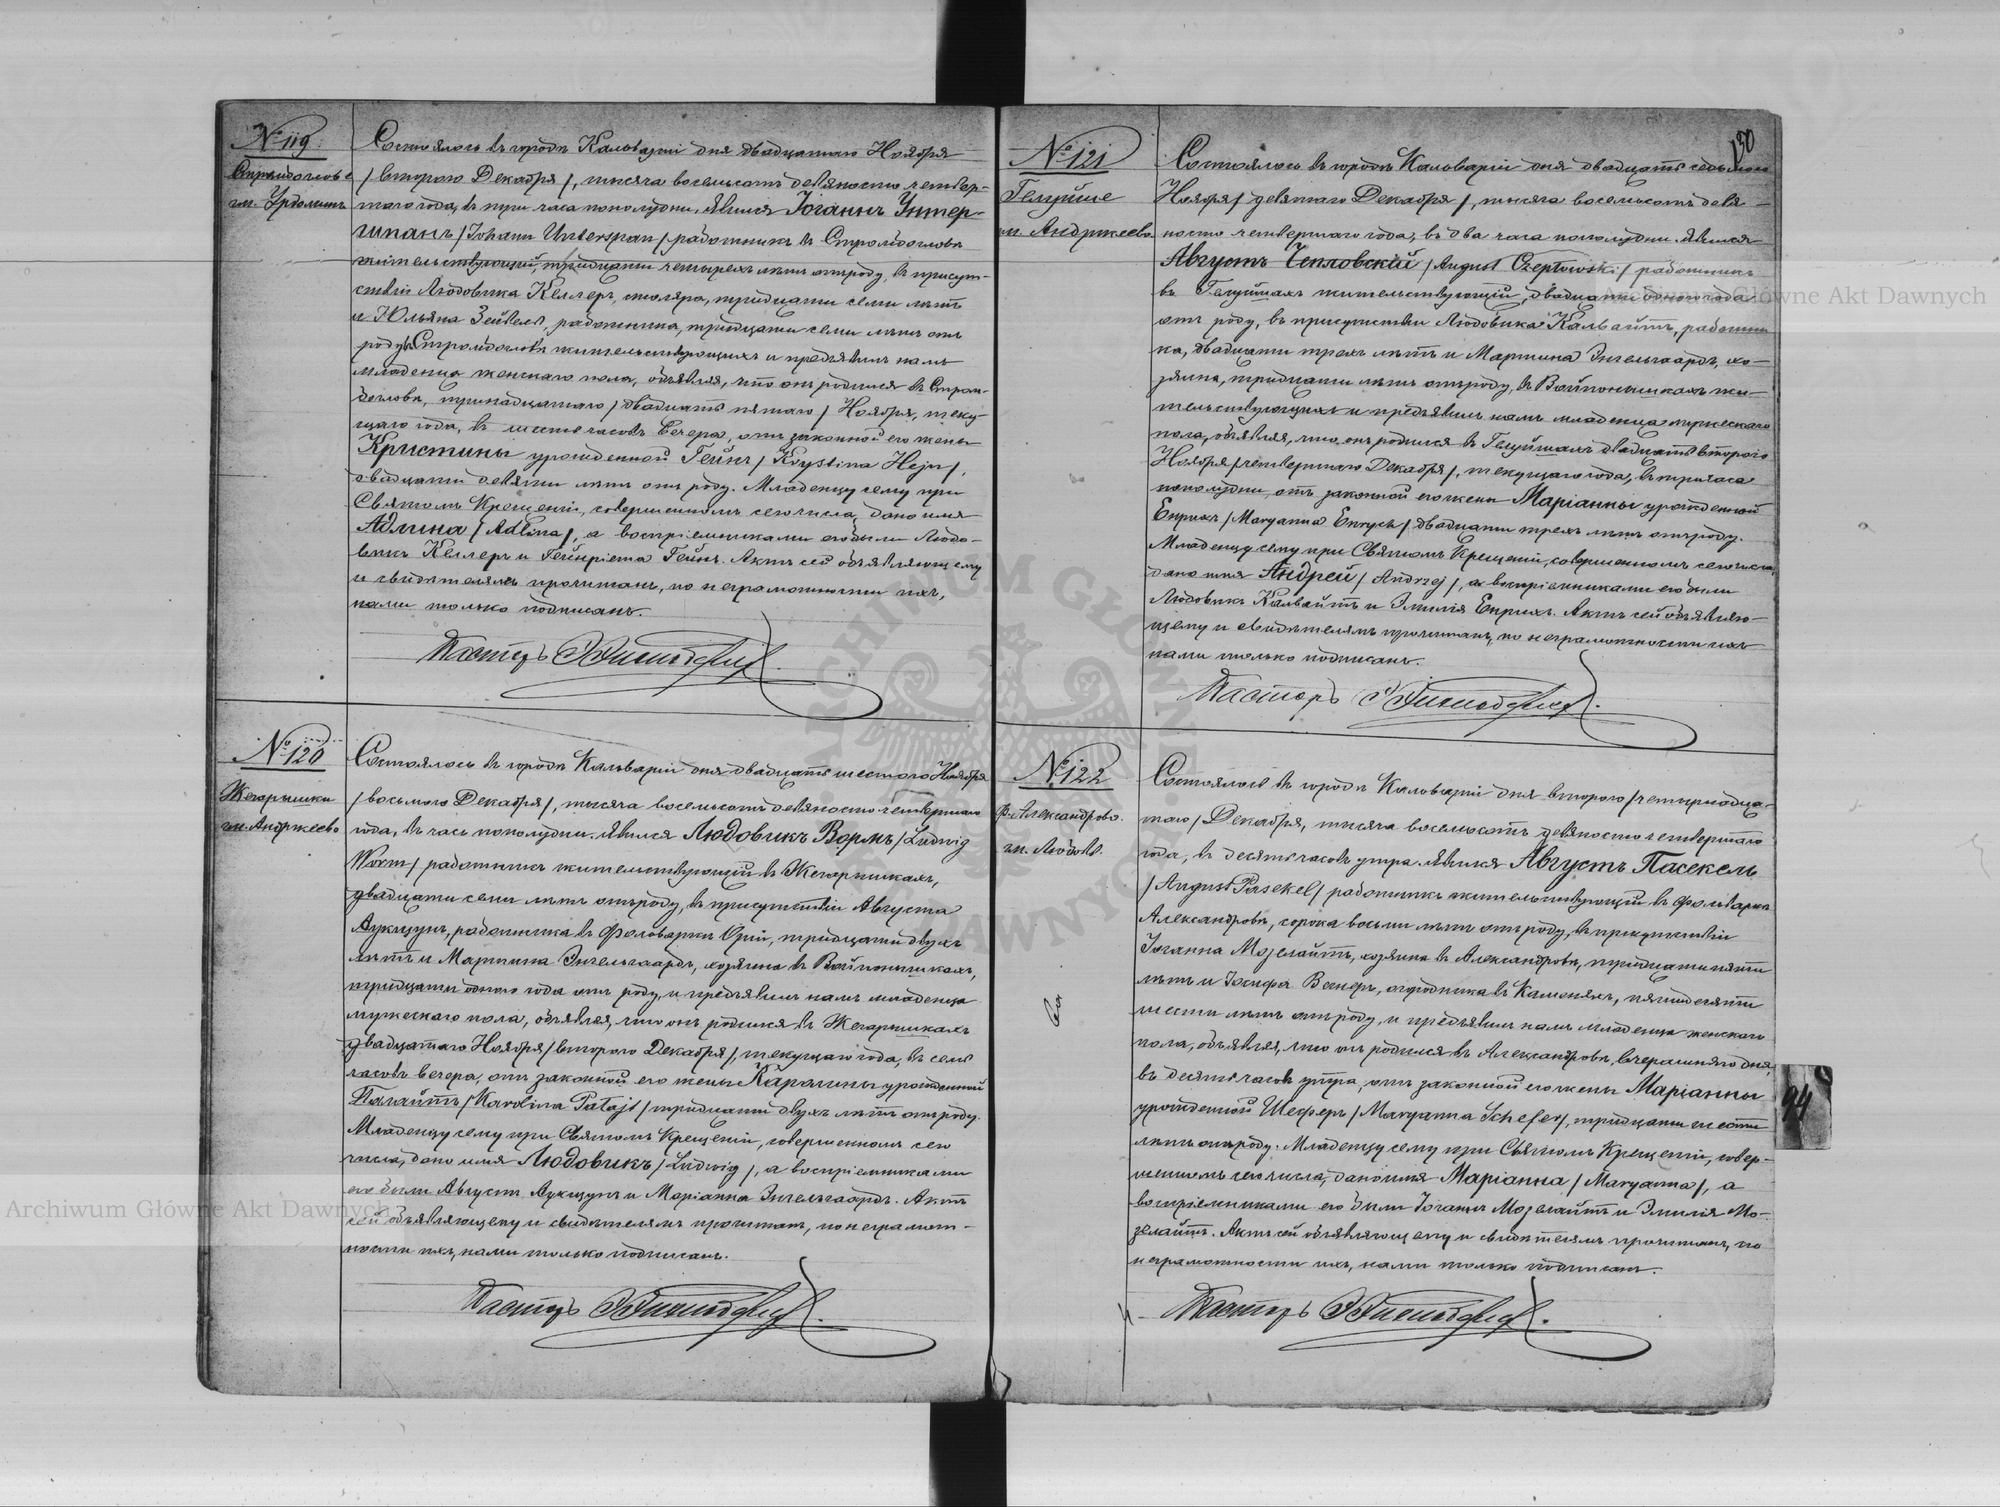 № 119
Стройдоглово
гм. Урдоминъ
Состоялось въ городѣ Кальваріи дня двадцатаго Ноября
/ втораго Декабря /, тысяча восемьсотъ девяносто четвер-
таго года, въ три часа пополудни. Явился Іоганнъ Унтер-
шпанъ / Johann Unterspan / работникъ въ Стройдогловѣ
жительствующій, тридцати четырехъ лѣтъ отъ роду, въ присут-
ствіи Людовика Келлеръ, столяра, тридцати семи лѣтъ
и Юльяна Зейвелъ, работника, тридцати семи лѣтъ отъ
роду, Стройдогловѣ жительствующихъ и предъявилъ намъ
младенца женскаго пола, объявляя, что онъ родился въ Строй-
догловѣ, тринадцатаго / двадцать пятаго / Ноября, теку-
щаго года, въ шесть часовъ вечера, отъ законной его жены
Кристины урожденной Гейнъ / Krystina Hejn /,
двадцати девяти лѣтъ отъ роду. Младенцу сему при
Святомъ Крещеніи, совершенномъ сего числа, дано имя
Адлина / Adlina /, а воспріемниками его были Людо-
викъ Келлеръ и Гейнріета Гейнъ. Актъ сей объявляющему
и свидѣтелямъ прочитанъ, по неграмотности ихъ,
нами только подписанъ.
Пасторъ
№ 120
Жегарышки
гм. Андржеево
Состоялось въ городѣ Кальваріи дня двадцать шестого Ноября
/ восьмого Декабря /, тысяча восемьсотъ девяносто четвертаго
года, въ часъ пополудни. Явился Людовикъ Вормъ / Ludwig
Worm / работникъ жительствующій въ Жегарышкахъ,
двадцати семи лѣтъ отъ роду, въ присутствіи Августа
Аукщунъ, работника въ Фольваркѣ Оріи, тридцати двухъ
лѣтъ и Мартина Энгельгаардъ, хозяина въ Войпонышкахъ,
тридцати одного года отъ роду, и предъявилъ намъ младенца
мужескаго пола, объявляя, что онъ родился въ Жегарышкахъ
двадцатаго Ноября / второго Декабря /, текущаго года, въ семь
часовъ вечера, отъ законной его жены Каролины урожденной
Патайтъ / Karolina Patajt / тридцати двухъ лѣтъ отъ роду.
Младенцу сему при Святомъ Крещеніи, совершенномъ сего
числа, дано имя Людовикъ / Ludwig /, а воспріемниками
его были Августъ Аукщунъ и Маріанна Энгельгаардъ. Актъ
сей объявляющему и свидѣтелямъ прочитанъ, по неграмот-
ности ихъ, нами только подписанъ.
Пасторъ
130
№ 121
Гелуйше
гм. Андржеево
Состоялось въ городѣ Кальваріи дня двадцать седьмого
Ноября / девятаго Декабря /, тысяча восемьсотъ девя-
носто четвертаго года, въ два часа пополудни. Явился
Августъ Чепловскій / August Czeplowski / работникъ
въ Гелуйшахъ жительствующій, двадцати одного года
отъ роду, въ присутствіи Людовика Кальвайтъ, работни-
ка, двадцати трехъ лѣтъ и Мартина Энгельгаардъ, хо-
зяина, тридцати лѣтъ отъ роду, въ Войпонышкахъ жи-
тельствующихъ и предъявилъ намъ младенца мужескаго
пола, объявляя, что онъ родился въ Гелуйшахъ двадцать второго
Ноября / четвертаго Декабря /, текущаго года, въ три часа
пополудни, отъ законной его жены Маріанны урожденной
Енрихъ / Maryanna Enrych / двадцати трехъ лѣтъ отъ роду.
Младенцу сему при Святомъ Крещеніи, совершенномъ сего числа,
дано имя Андрей / Andrzej /, а воспріемниками его были
Людовикъ Калвайтъ и Эмилія Енрихъ. Актъ сей объявляю-
щему и свидѣтелямъ прочитанъ, по неграмотности ихъ
нами только подписанъ.
Пасторъ
№ 122
Ф. Александрово.
гм. Людов.
Состоялось въ городѣ Кальваріи дня второго / четырнадца-
таго / Декабря, тысяча восемьсотъ девяносто четвертаго
года, въ десять часовъ утра. Явился Августъ Пасекель
/ August Pasekel / работникъ жительствующій въ Фольваркѣ
Александровѣ, сорока восьми лѣтъ отъ роду, въ присутствіи
Іоганна Мозелайтъ, хозяина въ Александровѣ, тридцати пяти
лѣтъ и Іосифа Вегнеръ, огородника въ Каменяхъ, пятидесяти
шести лѣтъ отъ роду, и предъявилъ намъ младенца женскаго
пола, объявляя, что онъ родился въ Александровѣ, вчерашняго дня,
въ десять часовъ утра, отъ законной его жены Маріанны
урожденной Шеферъ / Maryanna Schefer /, тридцати шести
лѣтъ отъ роду. Младенцу сему при Святомъ Крещеніи, совер-
шенномъ сего числа, дано имя Маріанна / Maryanna /, а
воспріемниками его были Іоганнъ Мозелайтъ и Эмилія Мо-
зелайтъ. Актъ сей объявляющему и свидѣтелямъ прочитанъ, по
неграмотности ихъ, нами только подписанъ.
Пасторъ
94
Archiwum Główne Akt Dawnych
Archiwum Główne Akt Dawnych
ARCHIWUM GŁÓWNE AKT DAWNYCH